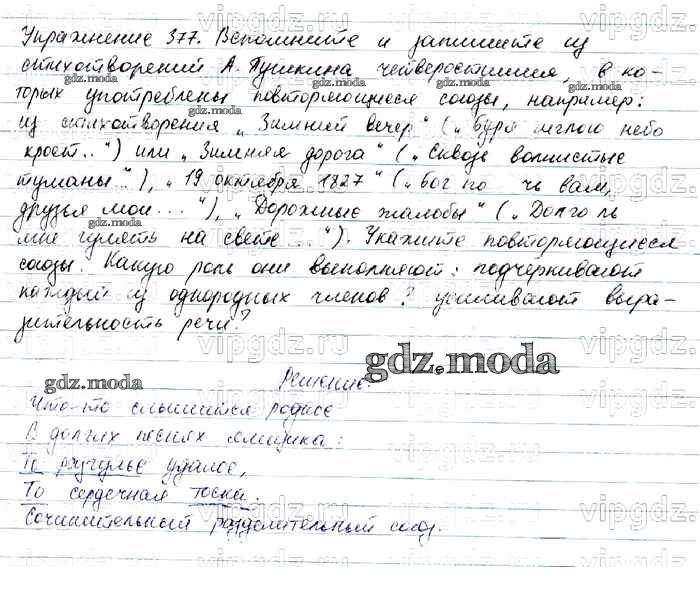 Упражнение 377. Вспомните и запишите из
стихотворений А. Пушкина четверостишия, в ко-
торых употреблены повторяющиеся союзы, например:
из стихотворения „Зимний вечер" („Буря мглою небо
кроет...") или „Зимняя дорога" („Сквозь волнистые
туманы..."), „19 октября 1827" („Бог по чь вам,
друзья мои..."), „Дорожные жалобы" („Долго ль
мне гулять на свете..."). Укажите повторяющиеся
союзы. Какую роль они выполняют: подчеркивают
каждый из однородных членов? усиливают выра-
зительность речи?
gdz.moda
Решение:
Что-то слышится родное
В долгих песнях ямщика:
То разгулье удалое,
То сердечная тоска.
Сочинительный разделительный союз.